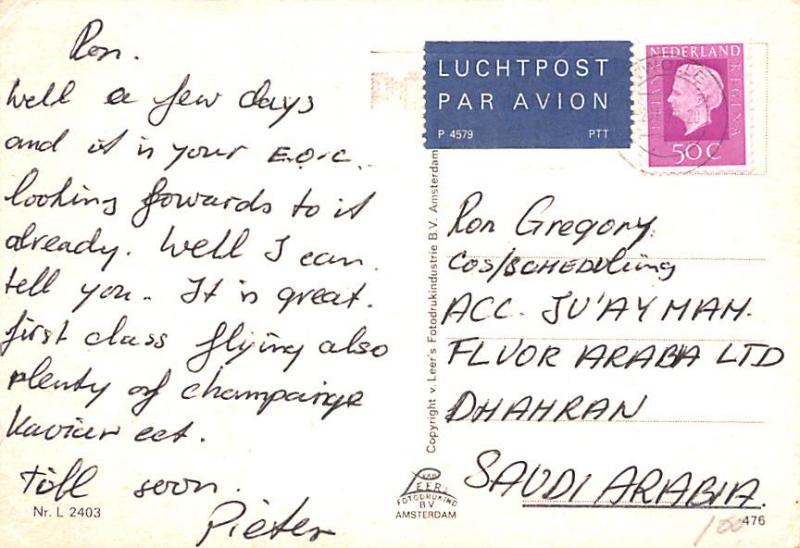 Ron.
Well a few days
and it is your E.O.C.
looking fowards to it
already. Well I can
tell you. It is great.
first class flying also
plenty of champainge
Kaviuer eet.
Till soon.
Pieter
Nr. L 2403
LUCHTPOST
PAR AVION
P 4579 PTT
NEDERLAND
JULIANA REGINA
50 C
Copyright v. Leer's Fotodrukindustrie B.V. Amsterdam
VAN
LEER'S
FOTODRUKIND
BV
AMSTERDAM
Ron Gregory
COS/SCHEDULING
ACC. JU'AYMAH.
FLUOR ARABIA LTD
DHAHRAN
SAUDI ARABIA.
476
100